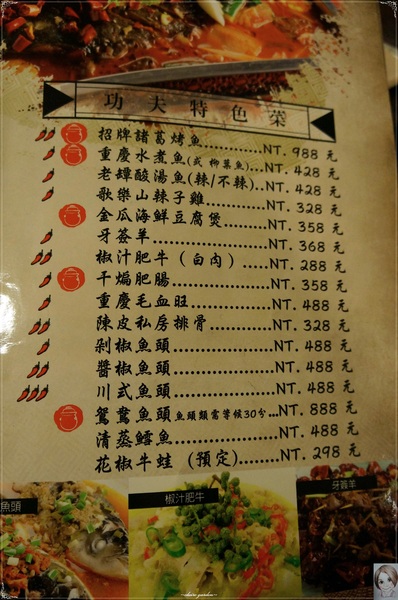 功夫特色菜
招牌諸葛烤魚............NT. 988 元
重慶水煮魚(或 柳葉魚)...NT. 428 元
老罈酸湯魚(辣/不辣)....NT. 428 元
歌樂山辣子雞............NT. 328 元
金瓜海鮮豆腐煲........NT. 358 元
牙簽羊....................NT. 368 元
椒汁肥牛(白肉).....NT. 288 元
干煸肥腸................NT. 358 元
重慶毛血旺..............NT. 488 元
陳皮私房排骨..........NT. 328 元
剁椒魚頭................NT. 488 元
醬椒魚頭................NT. 488 元
川式魚頭................NT. 488 元
鴛鴦魚頭魚頭類需等候30分...NT. 888 元
清蒸鱈魚................NT. 488 元
花椒牛蛙(預定)......NT. 298 元
魚頭
椒汁肥牛
牙簽羊